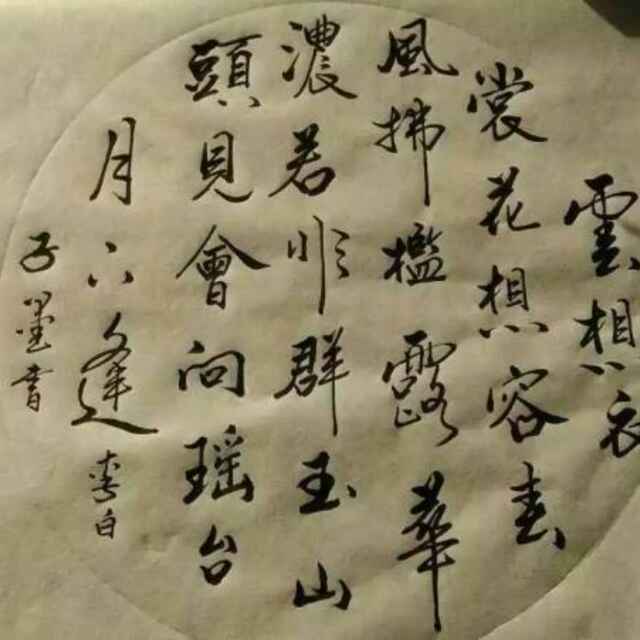 雲想衣
裳花想容春
風拂檻露華
濃若非群玉山
頭見會向瑶台
月下逢 李白
子墨書